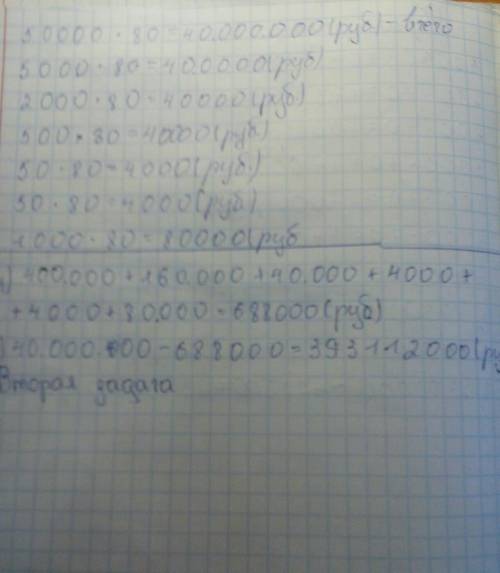 50000 · 80 = 40.000.000(руб) - всего
5000 · 80 = 400.000(руб)
2000 · 80 = 40000(руб)
500 · 80 = 40000(руб)
50 · 80 = 4000(руб)
50 · 80 = 4000(руб)
1000 · 80 = 80000(руб
) 400.000 + 160.000 + 40.000 + 4000 +
+ 4000 + 80.000 = 688000(руб)
) 40.000.000 - 688000 = 393112000(ру
Вторая задача